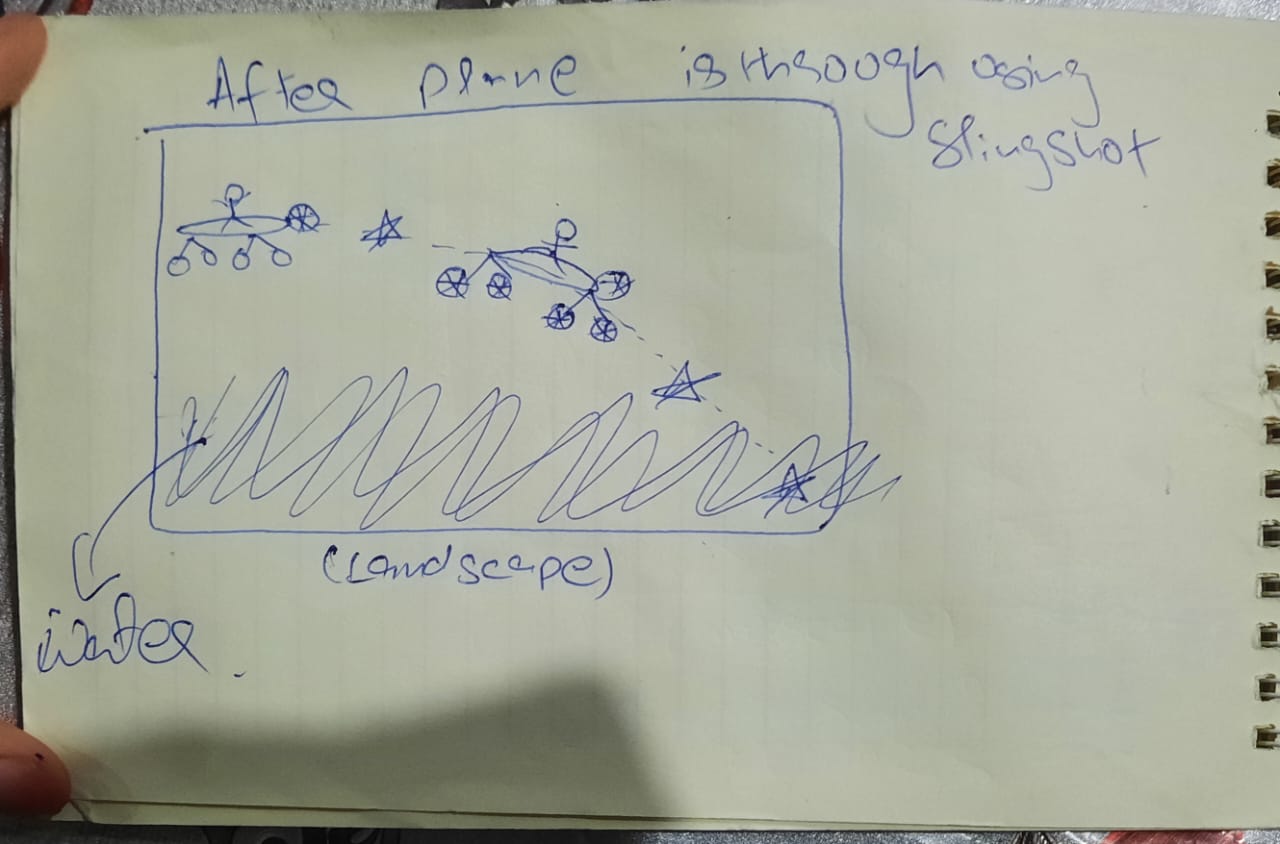 After plane is through using
Slingshot
(Landscape)
Water